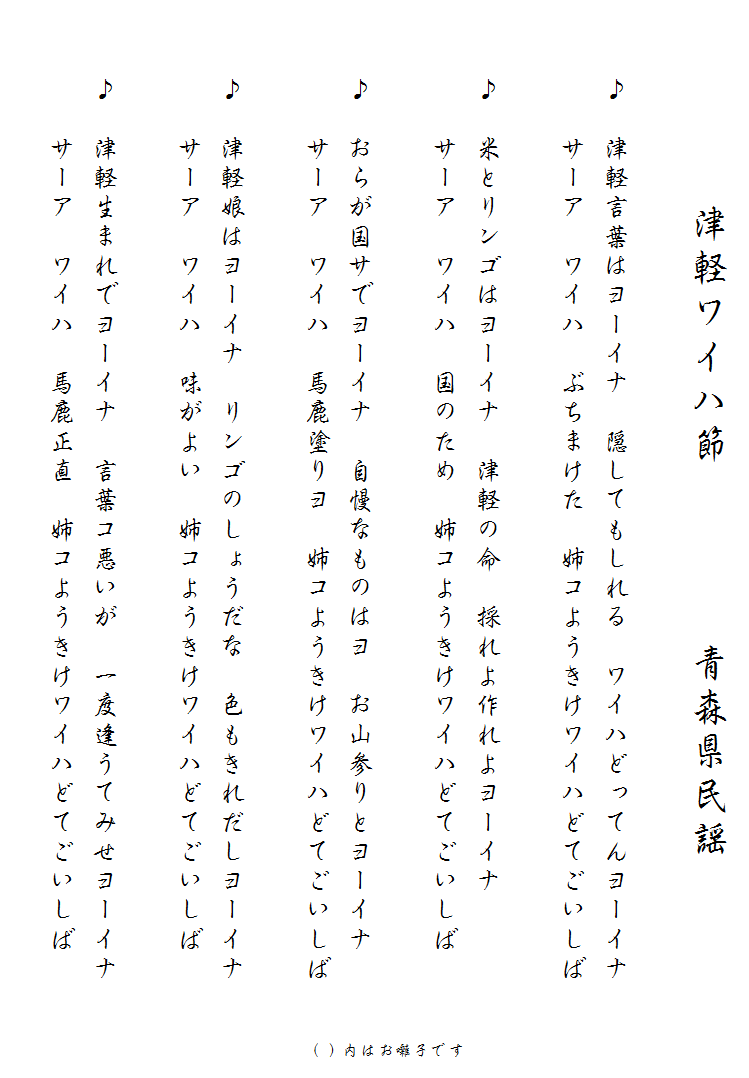 津軽ワイハ節　　青森県民謡
♪　津軽言葉はヨーイナ　隠してもしれる　ワイハどってんヨーイナ
サーア　ワイハ　ぶちまけた　姉コようきけワイハどてごいしば
♪　米とリンゴはヨーイナ　津軽の命　採れよ作れよヨーイナ
サーア　ワイハ　国のため　姉コようきけワイハどてごいしば
♪　おらが国サでヨーイナ　自慢なものはヨ　お山参りとヨーイナ
サーア　ワイハ　馬鹿塗りヨ　姉コようきけワイハどてごいしば
♪　津軽娘はヨーイナ　リンゴのしょうだな　色もきれだしヨーイナ
サーア　ワイハ　味がよい　姉コようきけワイハどてごいしば
♪　津軽生まれでヨーイナ　言葉コ悪いが　一度逢うてみせヨーイナ
サーア　ワイハ　馬鹿正直　姉コようきけワイハどてごいしば
（ ）内はお囃子です